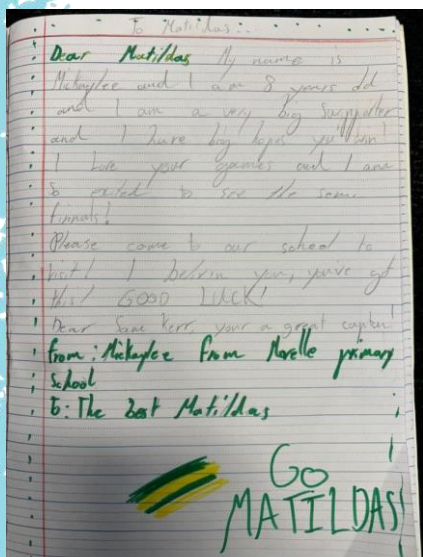 To Matildas..
Dear Matildas My name is
Mickaylee and I am 8 years old
and I am a very big Surpporter
and I have big hopes you win!
I Love your games and I am
So exited to see the semi
finnals!
Please come to our school to
visit! I belivin you, you've got
this! GOOD LUCK!
Dear Sam Kerr, your a great captin!
from: Mickaylee from Morelle primary
School
To: The best Matildas
GO
MATILDAS!